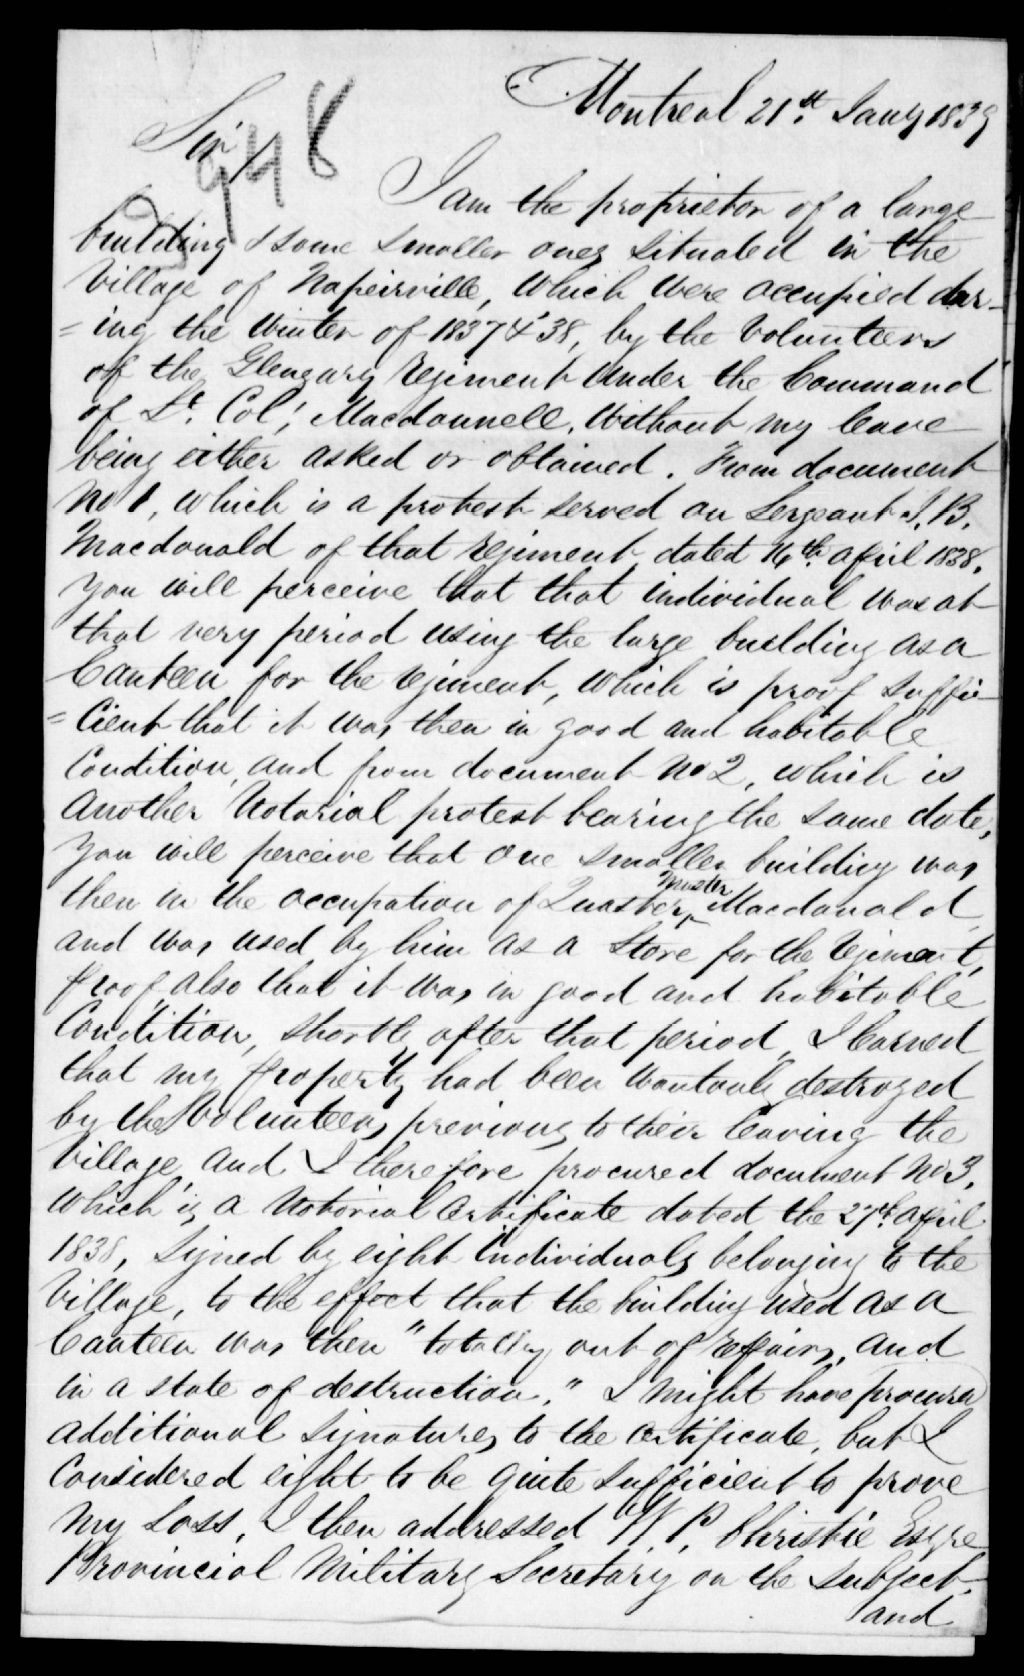 Montreal 21st Jany 1839
Sir,
948
I am the proprietor of a large
building & some smaller ones situated in the
Village of Napeirville, which were occupied dur-
=ing the Winter of 1837 & '38, by the Volunteers
of the Glengary Regiment under the Command
of Lt. Col; Macdonnell, without my leave
being either asked or obtained. From document
No 1, which is a protest served on Sergeant J. B.
Macdonald of that regiment dated 14th April 1838,
you will perceive that that individual was at
that very period using the large building as a
Canteen for the regiment, which is proof suffi-
=cient that it was then in good and habitable
Condition, and from document No 2, which is
another Notorial protest bearing the same date,
you will perceive that one smaller building was
then in the occupation of Quarter Master Macdonald
and was used by him as a Store for the regiment,
proof also that it was in good and habitable
Condition, shortly after that period, I learned
that my property had been wantonly destroyed
by the Volunteers previous to their leaving the
Village, and I therefore procured document No 3,
which is a Notorial Certificate dated the 27th April
1838, signed by eight individuals belonging to the
Village, to the effect that the building used as a
Canteen was then "totally out of repairs, and
in a state of destruction." I might have procured
additional signatures to the certificate, but I
Considered eight to be quite sufficient to prove
my loss, I then addressed W. P. Christie Esqre
Provincial Military Secretary on the subject,
and